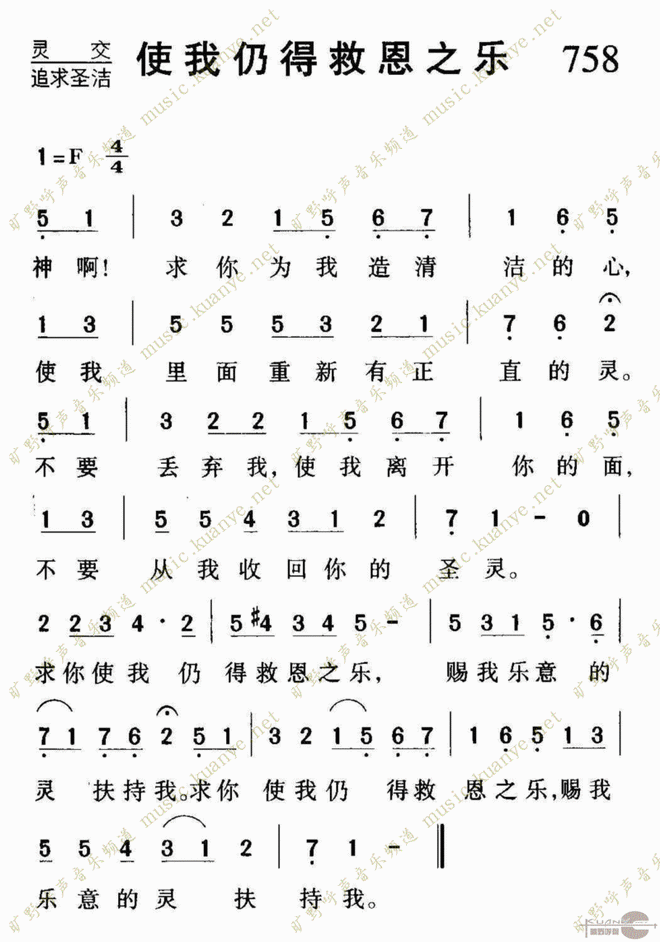 灵 交
追求圣洁
使我仍得救恩之乐 758
1=F 4/4
5 1 | 3 2 1 5 6 7 | 1 6 5
神啊! 求你为我造清 洁的心,
1 3 | 5 5 5 3 2 1 | 7 6 2
使我 里面重新有正 直的灵。
5 1 | 3 2 2 1 5 6 7 | 1 6 5
不要 丢弃我,使我离开 你的面,
1 3 | 5 5 4 3 1 2 | 7 1 - 0
不要 从我收回你的 圣灵。
2 2 3 4 · 2 | 5 #4 3 4 5 - | 5 3 1 5 · 6
求你使我 仍 得救恩之乐, 赐我乐意的
7 1 7 6 2 5 1 | 3 2 1 5 6 7 | 1 6 5 1 3
灵 扶持我。求你 使我仍 得救 恩之乐,赐我
5 5 4 3 1 2 | 7 1 - ‖
乐意的灵 扶 持我。
旷野呼声音乐频道 music.kuanye.net